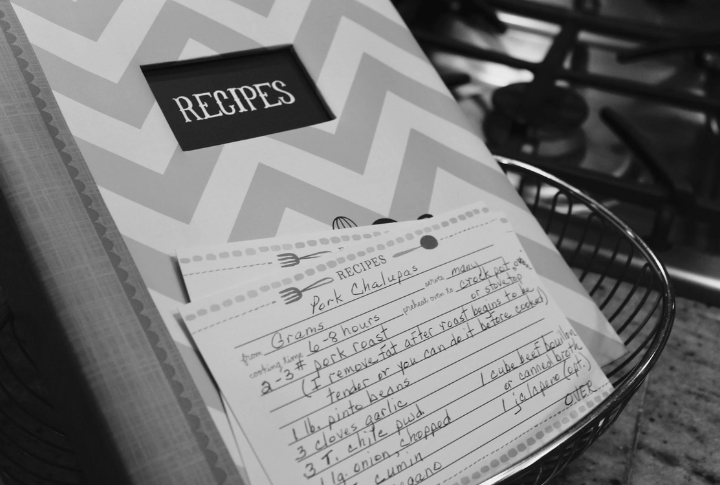 RECIPES
RECIPES
Pork Chalupas
from Grams serves many
cooking time 6-8 hours preheat oven to crock pot,
or stove top
2-3# pork roast
(I remove fat after roast begins to be
tender or you can do it before cooked)
1 lb. pinto beans 1 cube beef bouillon
3 cloves garlic or canned broth
3 T. chile pwd 1 jalapeno (opt.)
1 lg. onion, chopped OVER
T. cumin